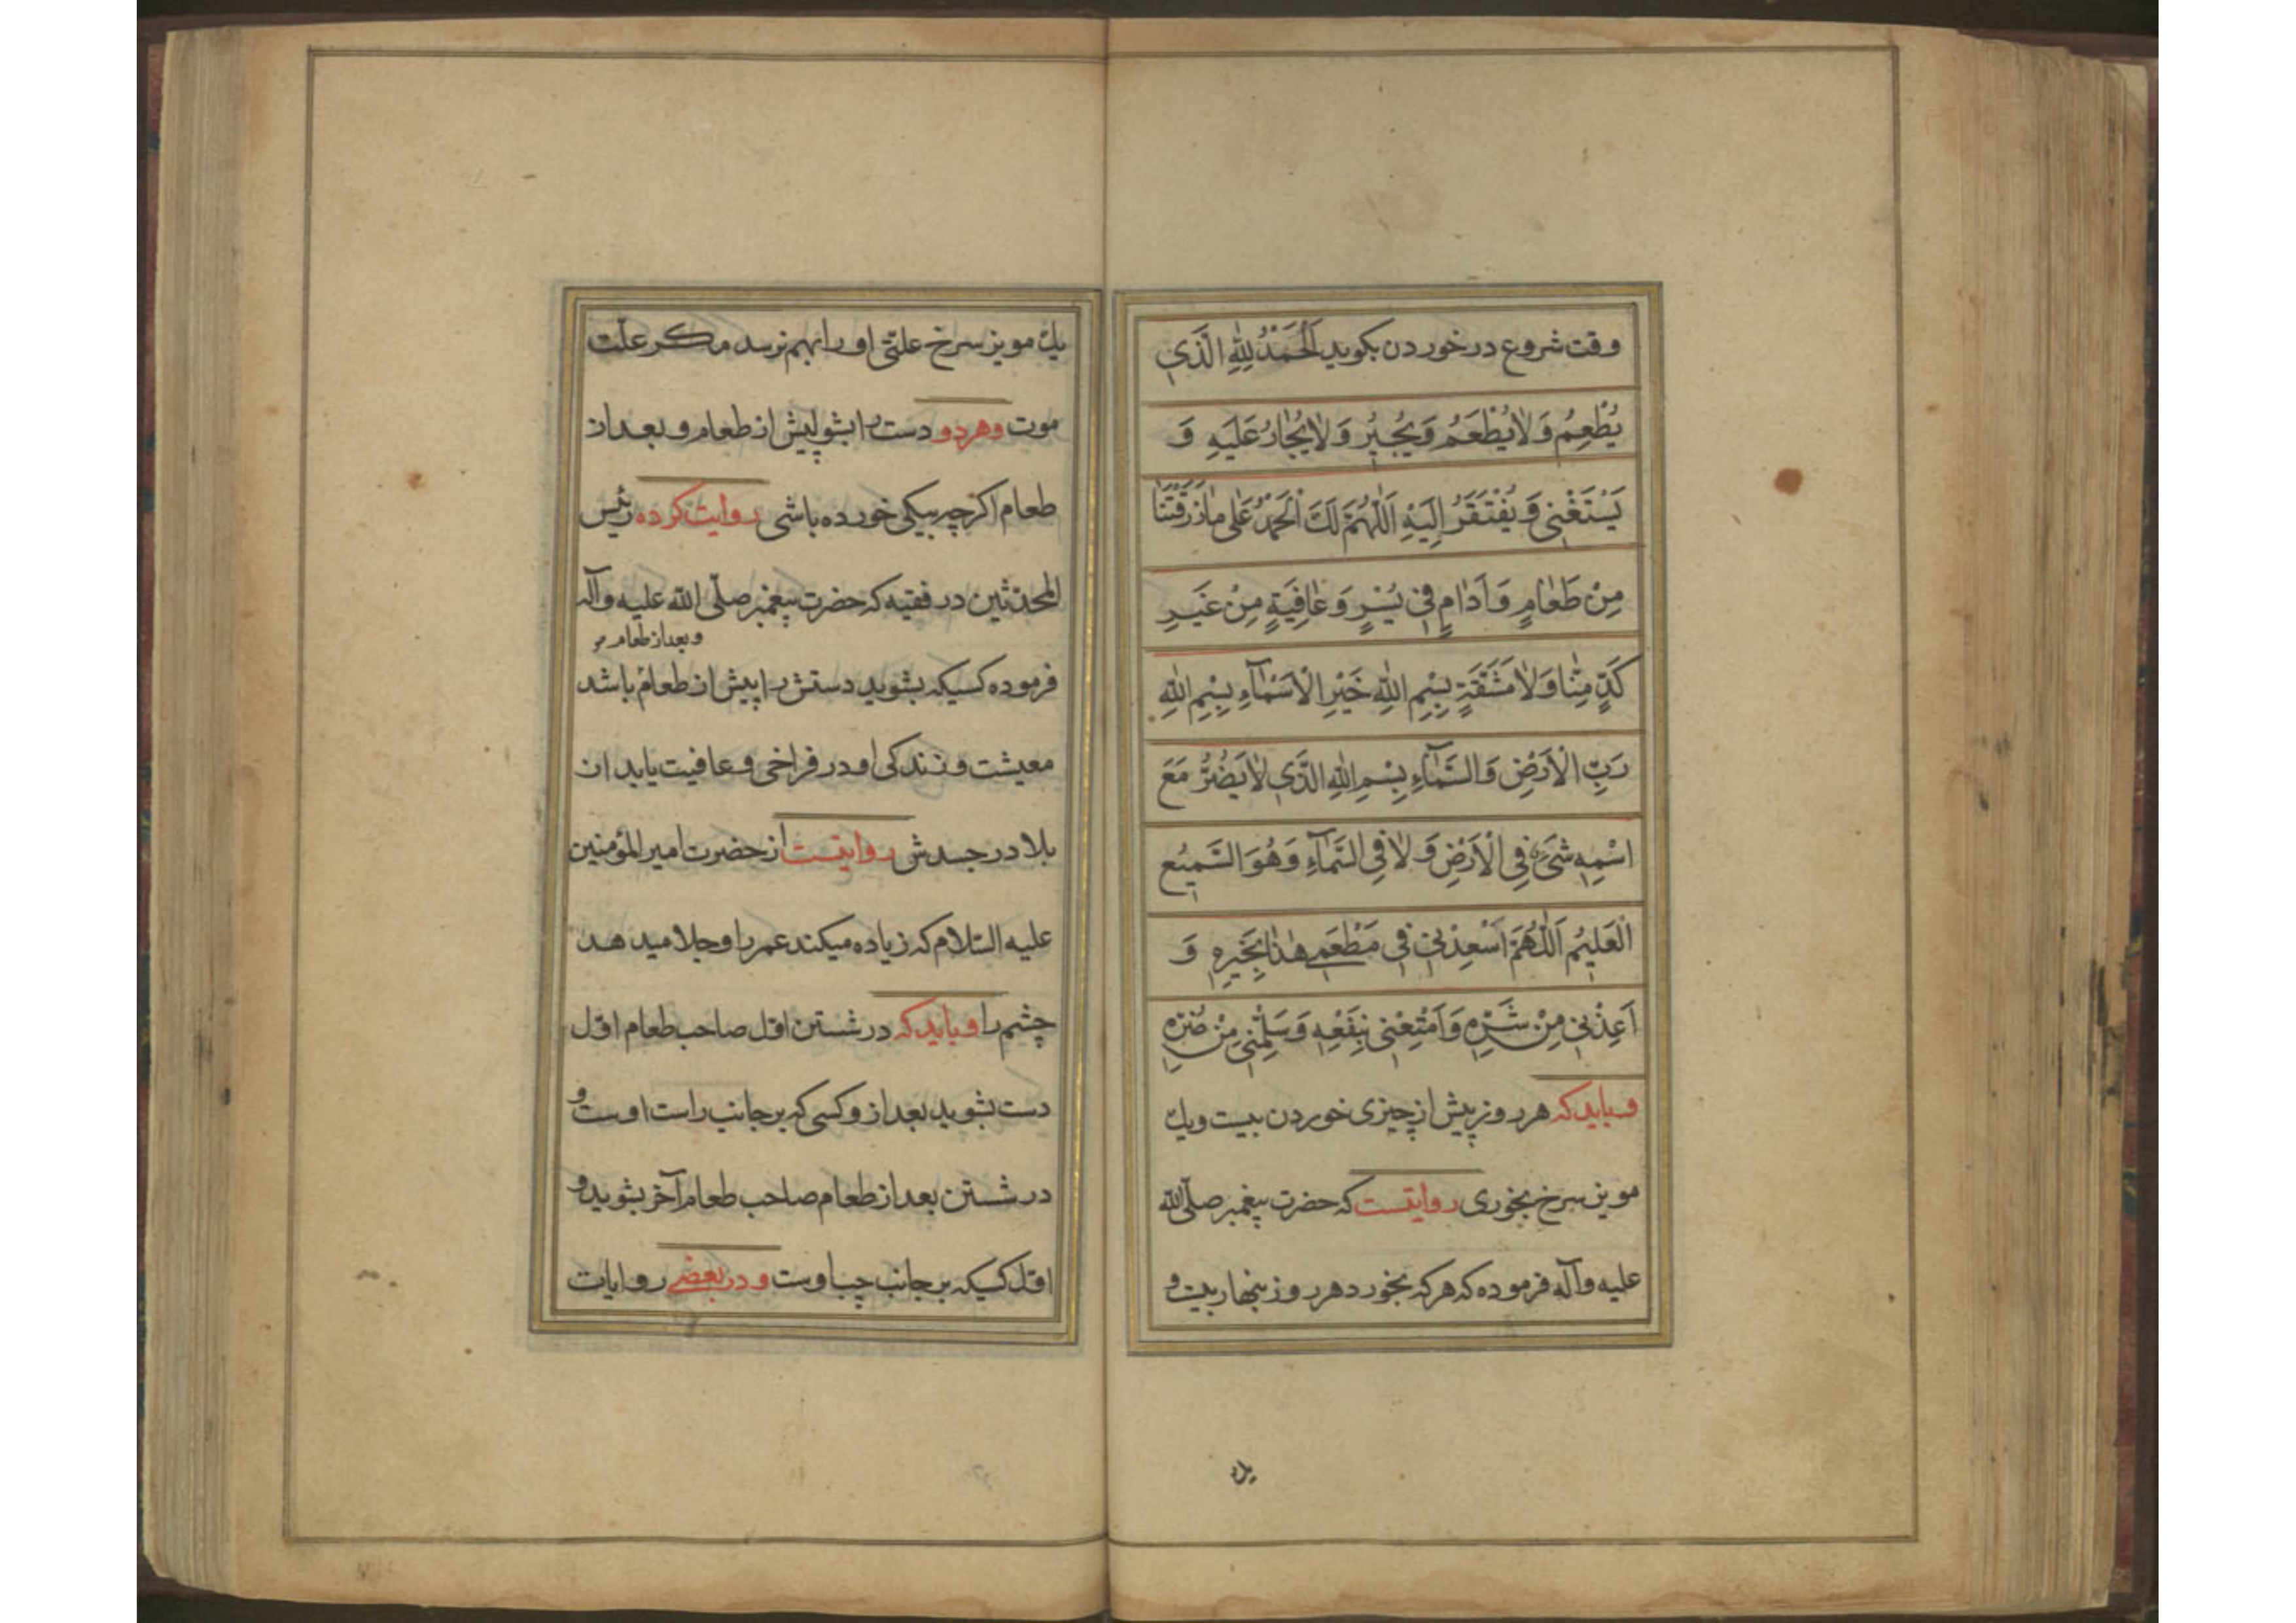 وقت شروع در خوردن بکوید اَلْحَمْدُ لِلّٰهِ الَّذی
یُطْعِمُ وَلٰا یُطْعَمُ وَیُجیٖرُ وَلٰا یُجٰارُ عَلَیْهِ وَ
یَسْتَغْنیٖ وَیُفْتَقَرُ اِلَیْهِ اَللّٰهُمَّ لَكَ الْحَمْدُ عَلٰی مٰا رَزَقْتَنٰا
مِنْ طَعٰامٍ وَاَدٰامٍ فیٖ یُسْرٍ وَعٰافِیَةٍ مِنْ غَیْرِ
كَدٍّ مِنّٰا وَلٰا مَشَقَّةٍ بِسْمِ اللّٰهِ خَیْرِ الْاَسْمٰآءِ بِسْمِ اللّٰهِ
رَبِّ الْاَرْضِ وَالسَّمٰآءِ بِسْمِ اللّٰهِ الَّذیٖ لٰا یَضُرُّ مَعَ
اسْمِهٖ شَیْءٌ فِی الْاَرْضِ وَلٰا فِی السَّمٰآءِ وَهُوَ السَّمیٖعُ
الْعَلیٖمُ اَللّٰهُمَّ اَسْعِدْنیٖ فیٖ مَطْعَمیٖ هٰذٰا بِخَیْرِهٖ وَ
اَعِذْنیٖ مِنْ شَرِّهٖ وَاَمْتِعْنیٖ بِنَفْعِهٖ وَسَلِّمْنیٖ مِنْ ضُرِّهٖ
و باید که هر روز پیش از چیزی خوردن بیست ویك
مویز سرخ بخوری روایتست که حضرت پیغمبر صلّی اللّه
علیه وآله فرموده که هرکه بخورد هر روز بنهار بیست و
یك
یك مویز سرخ علتّی او را بهم نرسد مکر علّت
موت وهر دو دست را بشو پیش از طعام و بعد از
طعام اکرچه بیکی خورده باشی روایت کرده رئیس
المحدّثین در فقیه که حضرت پیغمبر صلّی اللّه علیه وآله
و بعد از طعام
فرموده کسیکه بشوید دستش را پیش از طعام باشد
معیشت و زندکی او در فراخی و عافیت یابد از
بلا در جسدش روایتست از حضرت امیر المؤمنین
علیه السّلام که زیاده میکند عمر را و جلا میدهد
چشم را و باید که در شستن اوّل صاحب طعام اوّل
دست بشوید بعد از و کسی که بر جانب راست اوست و
در شستن بعد از طعام صاحب طعام آخر بشوید و
اوّل کسیکه بر جانب چپ اوست و در بعضے روایات